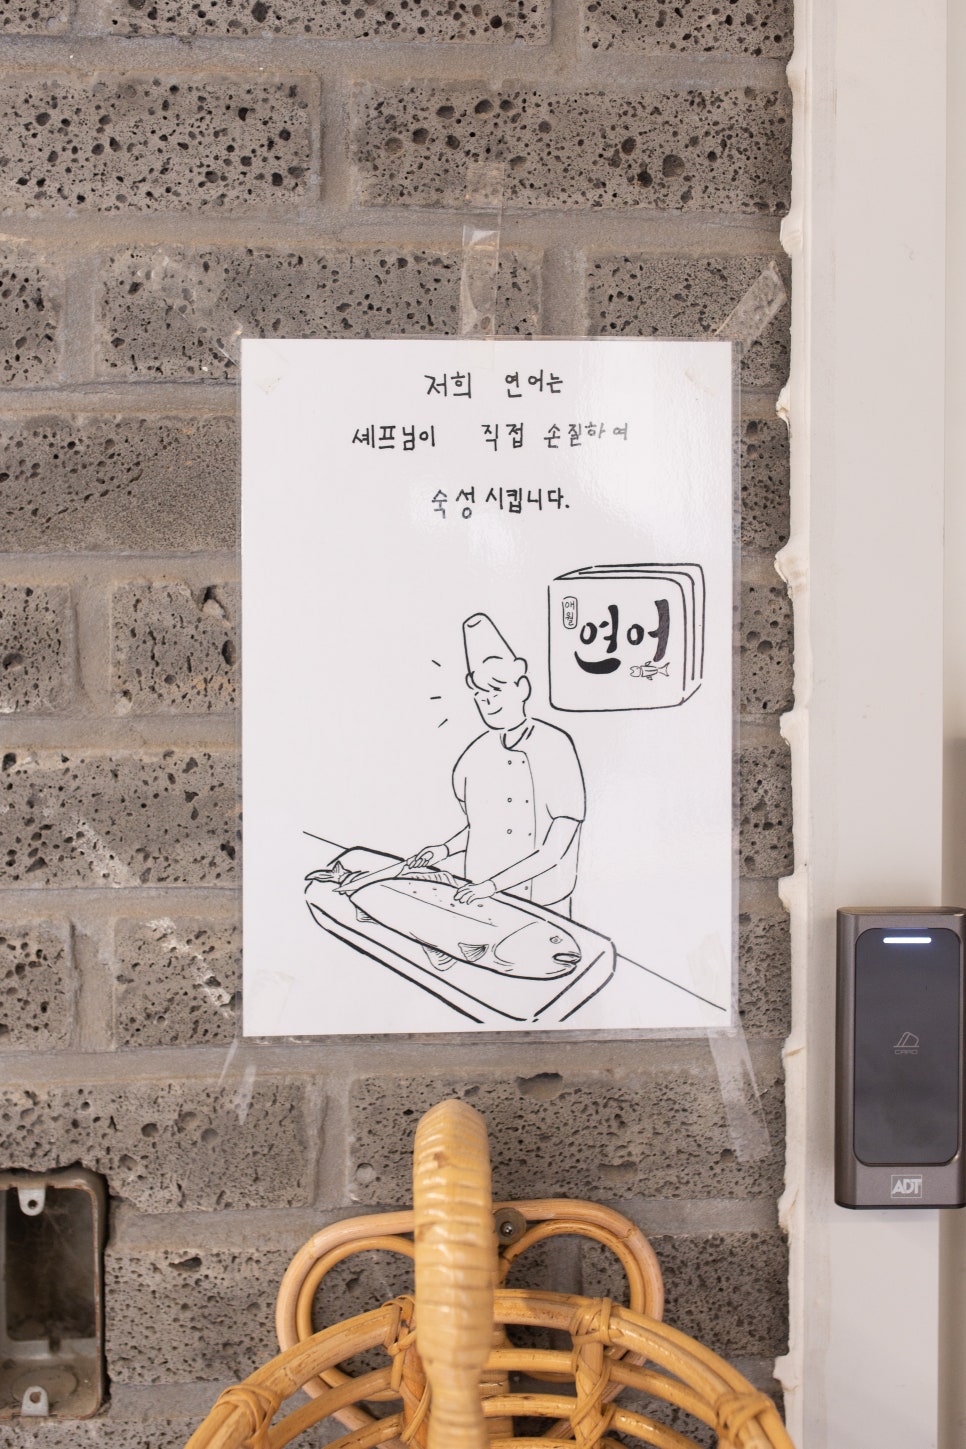 저희 연어는
셰프님이 직접 손질하여
숙성시킵니다.
애월
연어
CARD
ADT